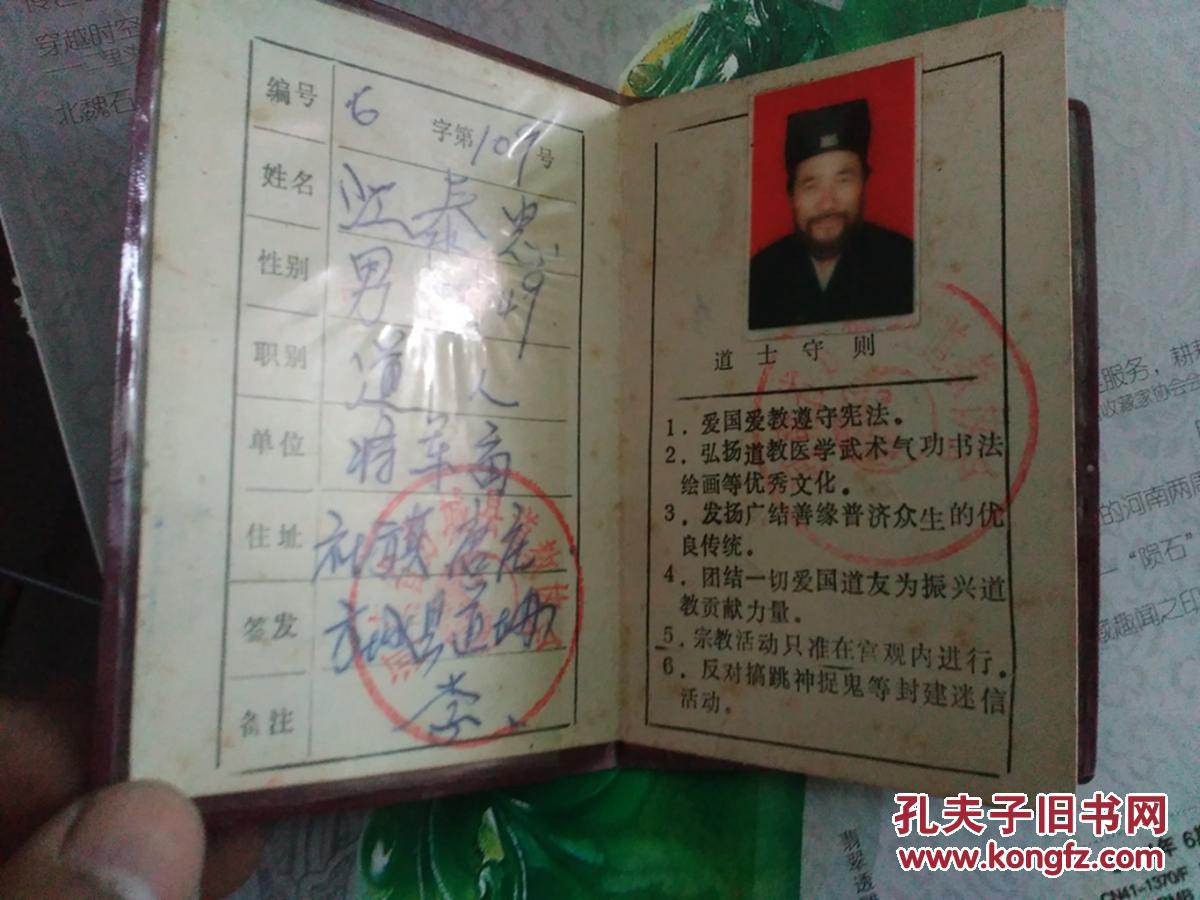 穿越时空
北魏石
编号 6 字第109号
姓名
性别 男 49
职别 道人
单位 将军庙
住址 社旗
签发 方城县道协
备注 李
道士守则
1．爱国爱教遵守宪法。
2．弘扬道教医学武术气功书法
绘画等优秀文化。
3．发扬广结善缘普济众生的优
良传统。
4．团结一切爱国道友为振兴道
教贡献力量。
5．宗教活动只准在宫观内进行。
6．反对搞跳神捉鬼等封建迷信
活动。
服务，耕耘
收藏家协会会
的河南两周
“陨石”
趣闻之印
翡翠透
年 6
CN41-1370/F
孔夫子旧书网
www.kongfz.com